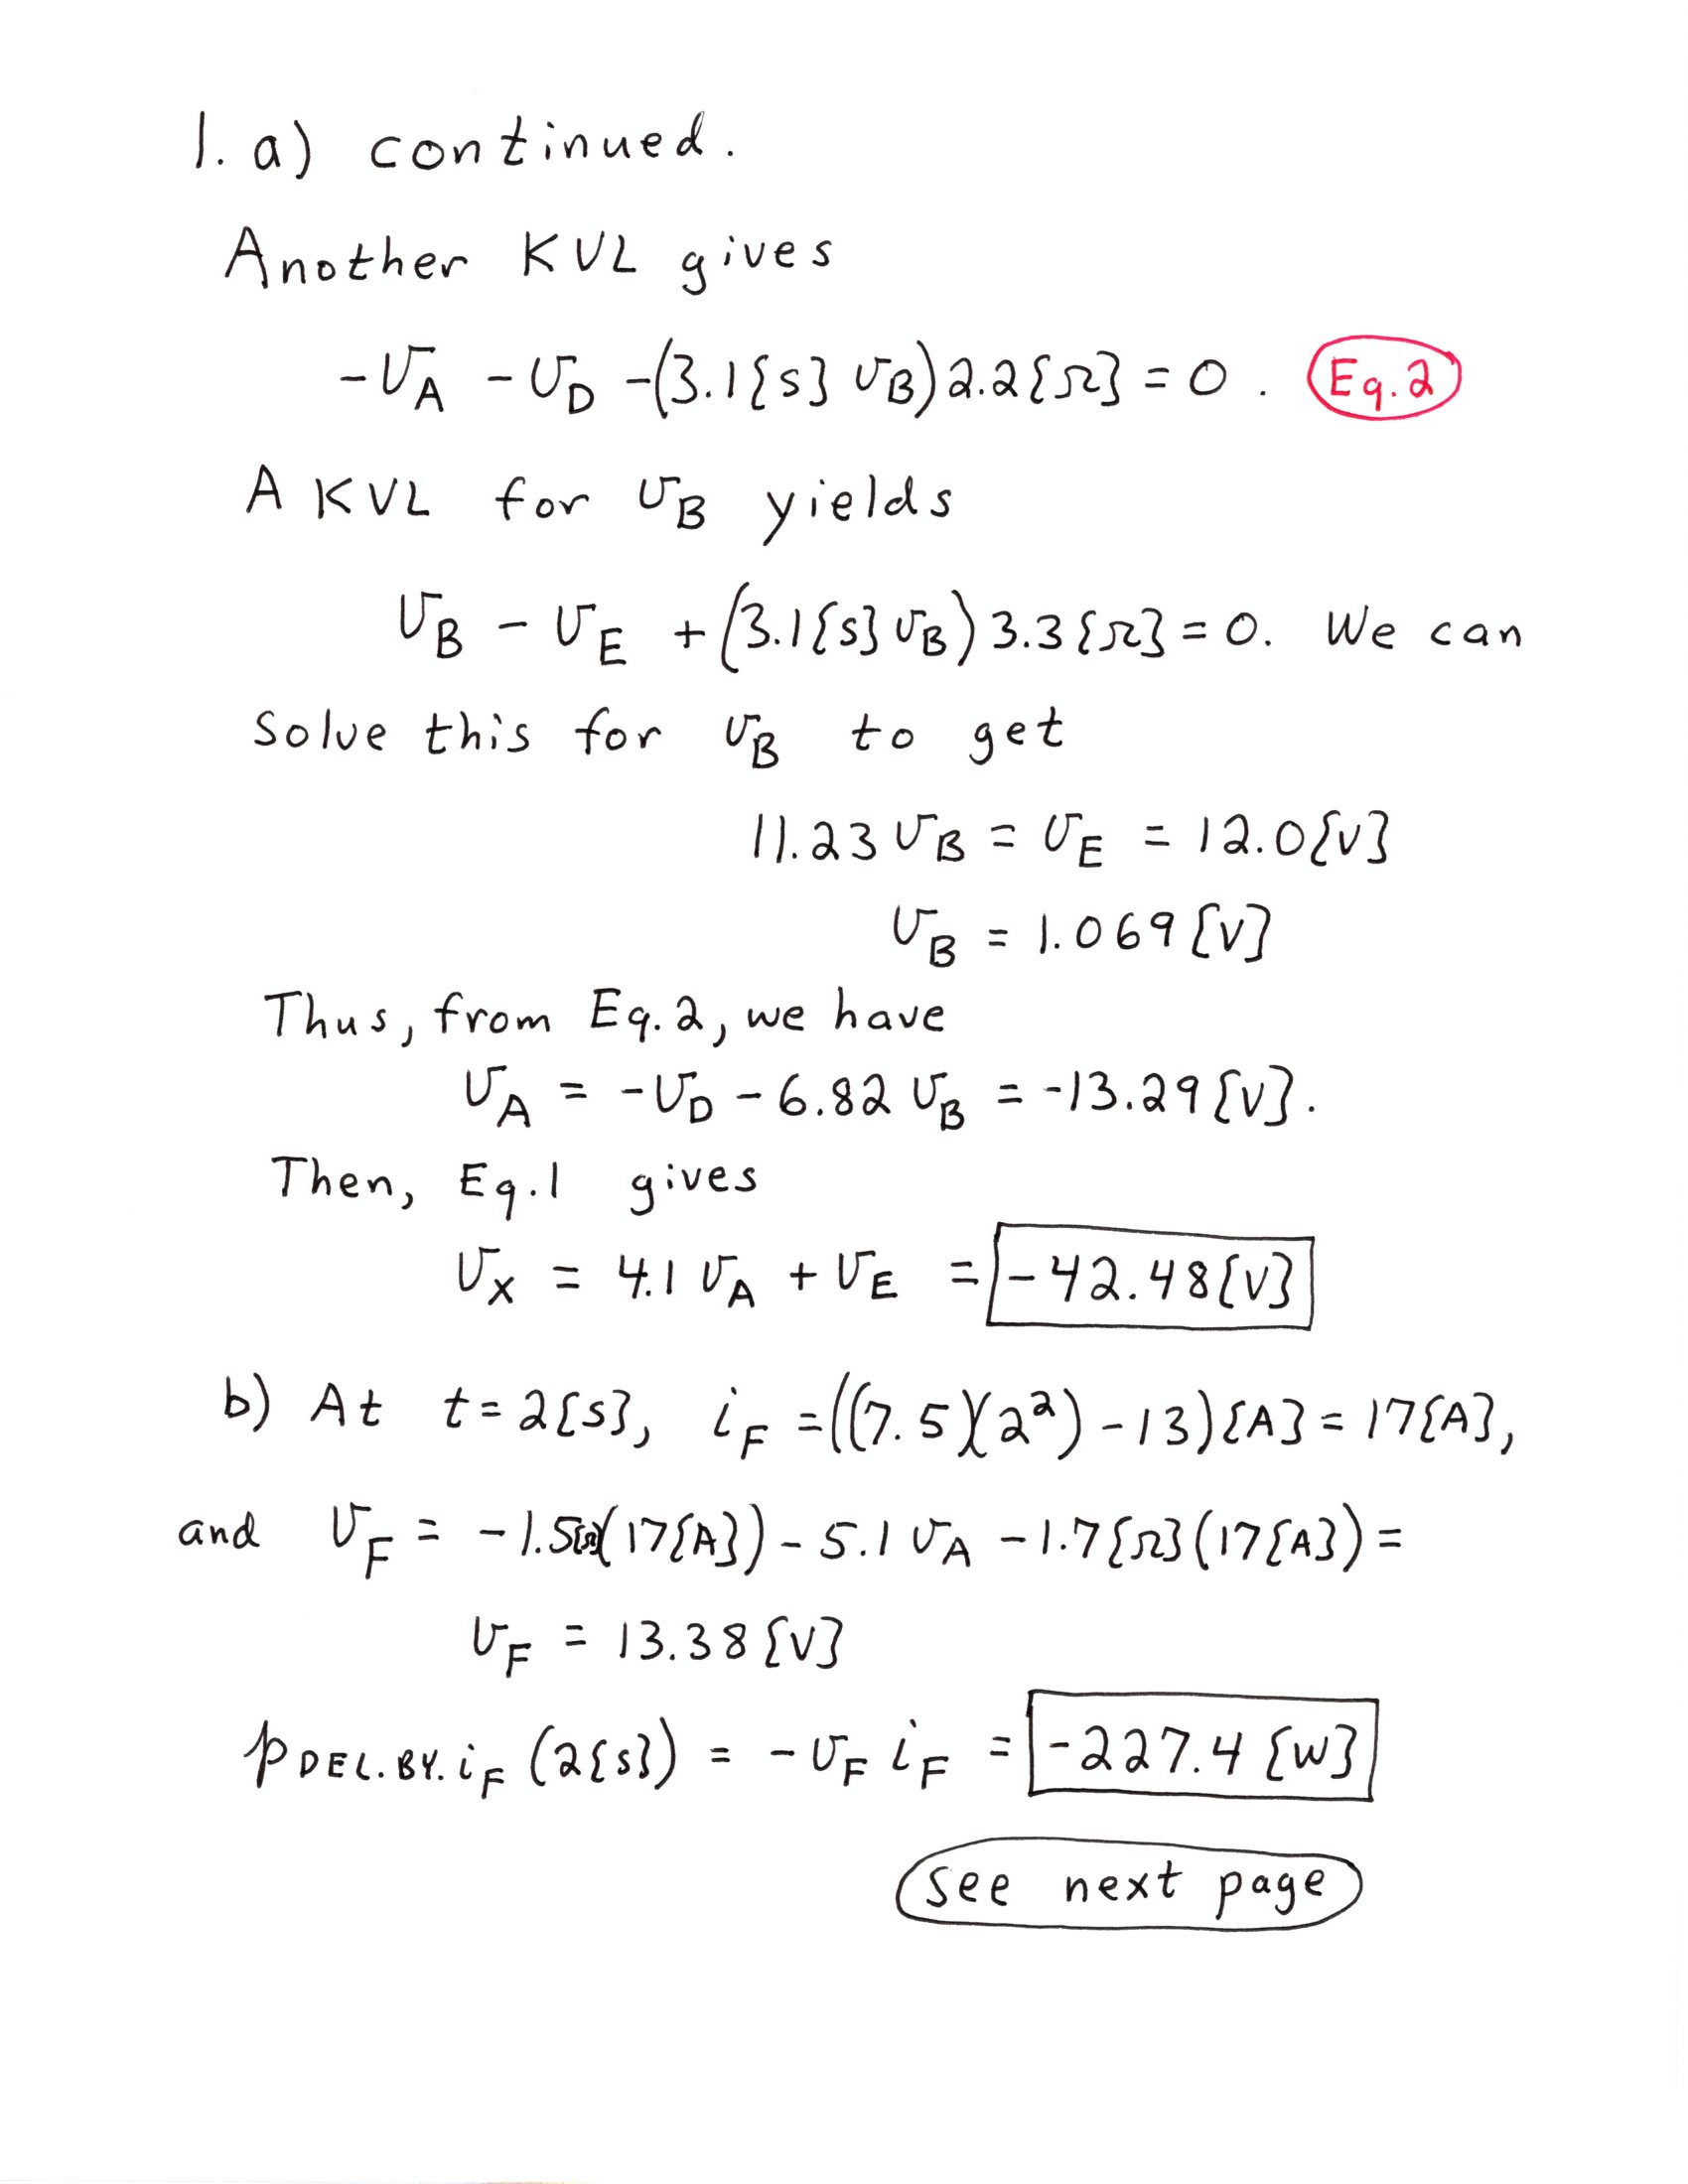 1. a) continued.
Another KVL gives
-v_A - v_D -(3.1{S} v_B)2.2{Ω} = 0 . Eq.2
A KVL for v_B yields
v_B - v_E + (3.1{S} v_B) 3.3{Ω} = 0. We can
solve this for v_B to get
11.23 v_B = v_E = 12.0{V}
v_B = 1.069{V}
Thus, from Eq.2, we have
v_A = -v_D - 6.82 v_B = -13.29{V}.
Then, Eq.1 gives
v_X = 4.1 v_A + v_E = -42.48{V}
b) At t=2{s}, i_F =((7.5)(2²)-13){A} = 17{A},
and v_F = -1.5{Ω}(17{A}) - 5.1 v_A - 1.7{Ω}(17{A}) =
v_F = 13.38{V}
p_DEL.BY.i_F (2{s}) = - v_F i_F = -227.4 {W}
see next page